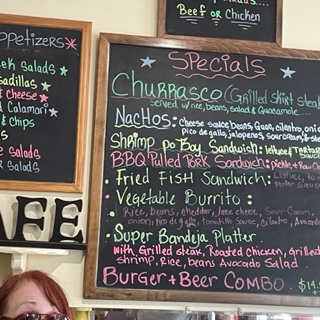 Beef or Chicken
ppetizers
ek Salads
sadillas
& Cheese
d Calamari
& Chips
s
e Salads
r Salads
AFE
Specials
Churrasco (Grilled skirt steak
served w/ rice, beans, salad & Guacamole....
Nachos: cheese sauce, beans, Guac, cilantro, oni
pico de gallo, jalapenos, sour cream, & st
Shrimp po Boy Sandwich: lettuce & Tartar
sauce
BBQ Pulled Pork Sandwich: pickle &
Fried Fish Sandwich:
Vegetable Burrito:
Rice, beans, cheddar, free cheese, sour cream,
onion, pico de gallo, tomatillo sauce, cilantro, Avocado
Super Bandeja Platter
with Grilled steak, Roasted chicken, grilled
shrimp, Rice, beans Avocado Salad
Burger + Beer Combo. $14.